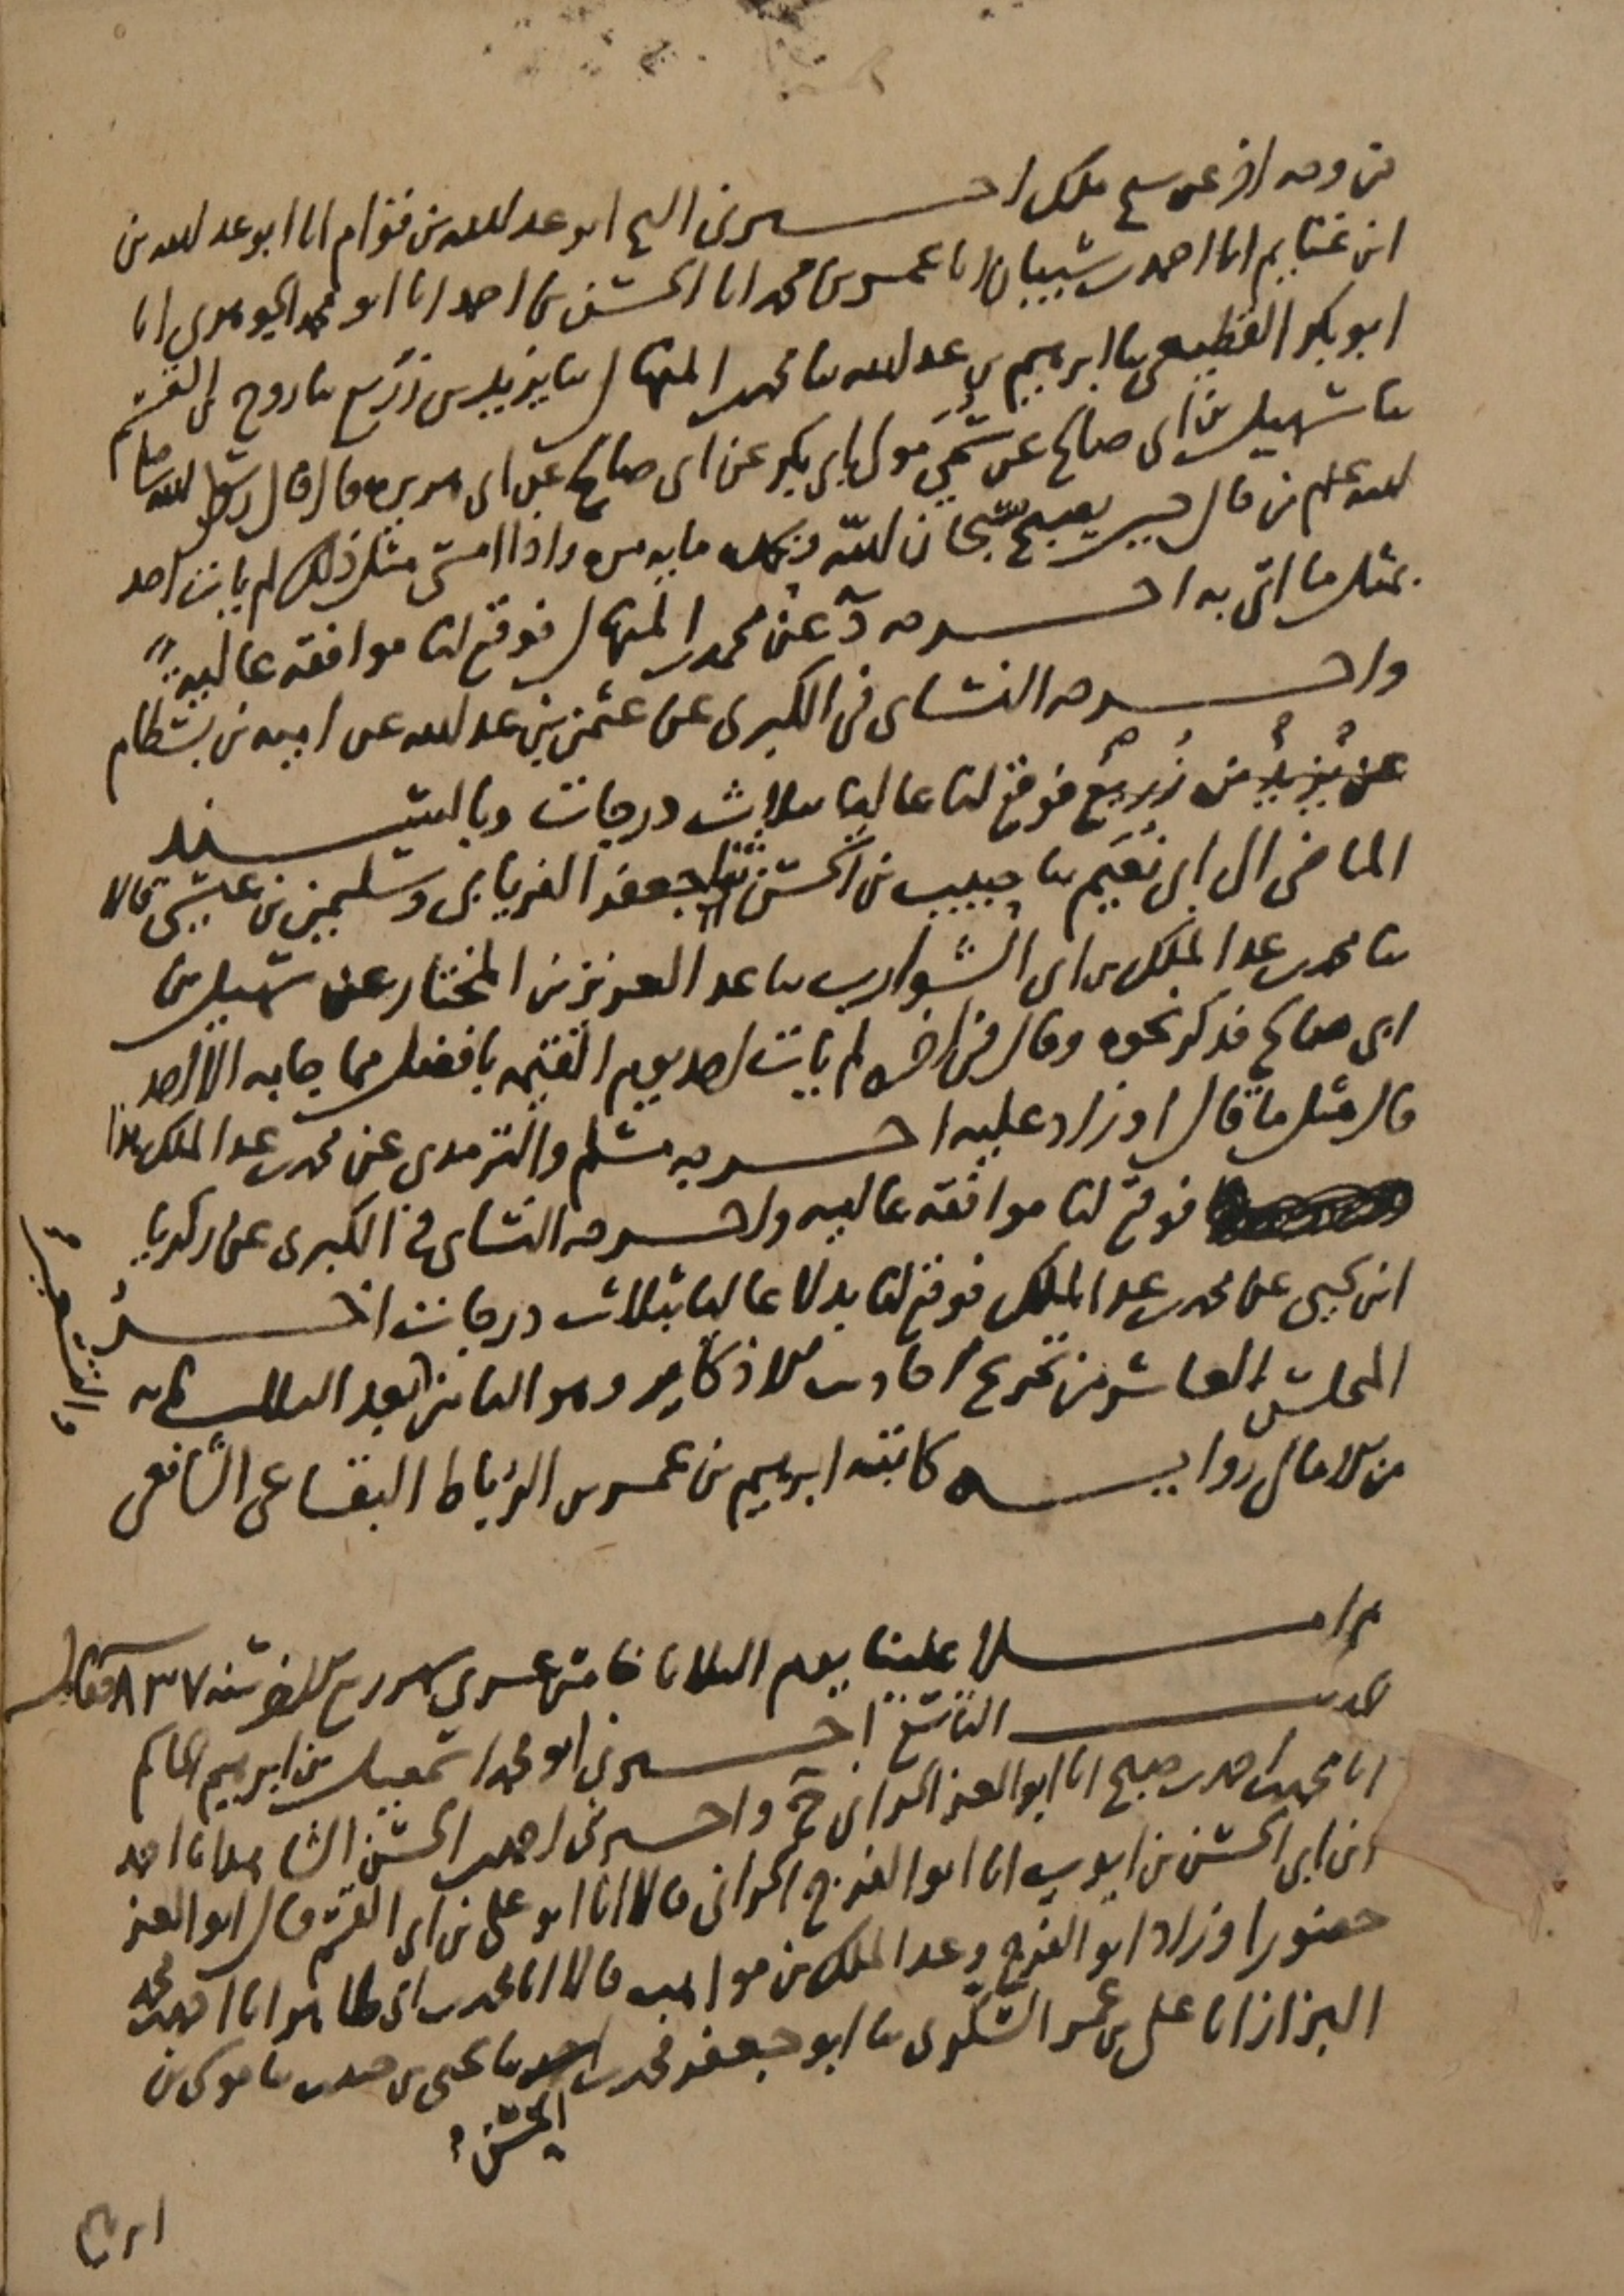 من وجه اخر عن سهيل اخبرني الشيخ ابو عبد الله بن قوام انا ابو عبد الله بن
ابن غنايم انا احمد بن شيبان انا عمر بن محمد انا الحسن بن احمد انا ابو محمد الجوهري انا
ابو بكر القطيعي ثنا ابرهيم بن عبد الله ثنا محمد بن المنهال ثنا يزيد بن زريع ثنا روح بن القسم
ثنا سهيل بن ابي صالح عن سمي مولى ابي بكر عن ابي صالح عن ابي هريره قال قال رسول الله صلى
الله عليه وسلم من قال حين يصبح سبحان الله وبحمده مايه مره واذا امسى مثل ذلك لم يات احد
بمثل ما اتى به اخرجه د عن محمد بن المنهال فوقع لنا موافقة عالية
واخرجه النساي في الكبرى عن عثمن بن عبد الله عن اميه بن بسطام
عن يزيد بن زريع فوقع لنا عاليا بثلاث درجات وبالسند
الماضي الى ابي نعيم ثنا حبيب بن الحسن ثنا جعفر الفريابي وسليمن بن عيسى قالا
ثنا محمد بن عبد الملك بن ابي الشوارب ثنا عبد العزيز بن المختار عن سهيل بن
ابي صالح فذكر نحوه وقال في اخره لم يات احد يوم القيمه بافضل مما جا به الا احد
قال مثل ما قال او زاد عليه اخرجه مسلم والترمذي عن محمد بن عبد الملك هذا
فوقع لنا موافقة عاليه واخرجه النساي في الكبرى عن زكريا
ابن يحيى عن محمد بن عبد الملك فوقع لنا بدلا عاليا بثلاث درجات اخر
المجلس العاشر من تخريج احاديث الاذكار وهو الثامن بعد الثلثمايه
من الامالي رواية كاتبه ابرهيم بن عمر بن الرباط البقاعي الشافعي
ثم املا علينا يوم الثلاثا خامس عشري شهر ربيع الاخر سنه ٨٣٧ فقال
الحديث التاسع اخبرني ابو محمد اسمعيل بن ابرهيم الحاكم
انا محمد بن احمد بن صبح انا ابو العز الحراني ح واخبرني احمد بن الحسن انا احمد
ابن ابي الحسن بن ايوب انا ابو الفرج الحراني قالا انا ابو علي بن ابي القسم قال ابو العز
حضورا وزاد ابو الفرج وعبد الملك بن مواهب قالا انا محمد بن ابي طاهر انا احمد بن محمد
البزاز انا علي بن عمر السكري ثنا ابو جعفر محمد بن ثنا يحيى بن ثنا موسى بن
الحسن